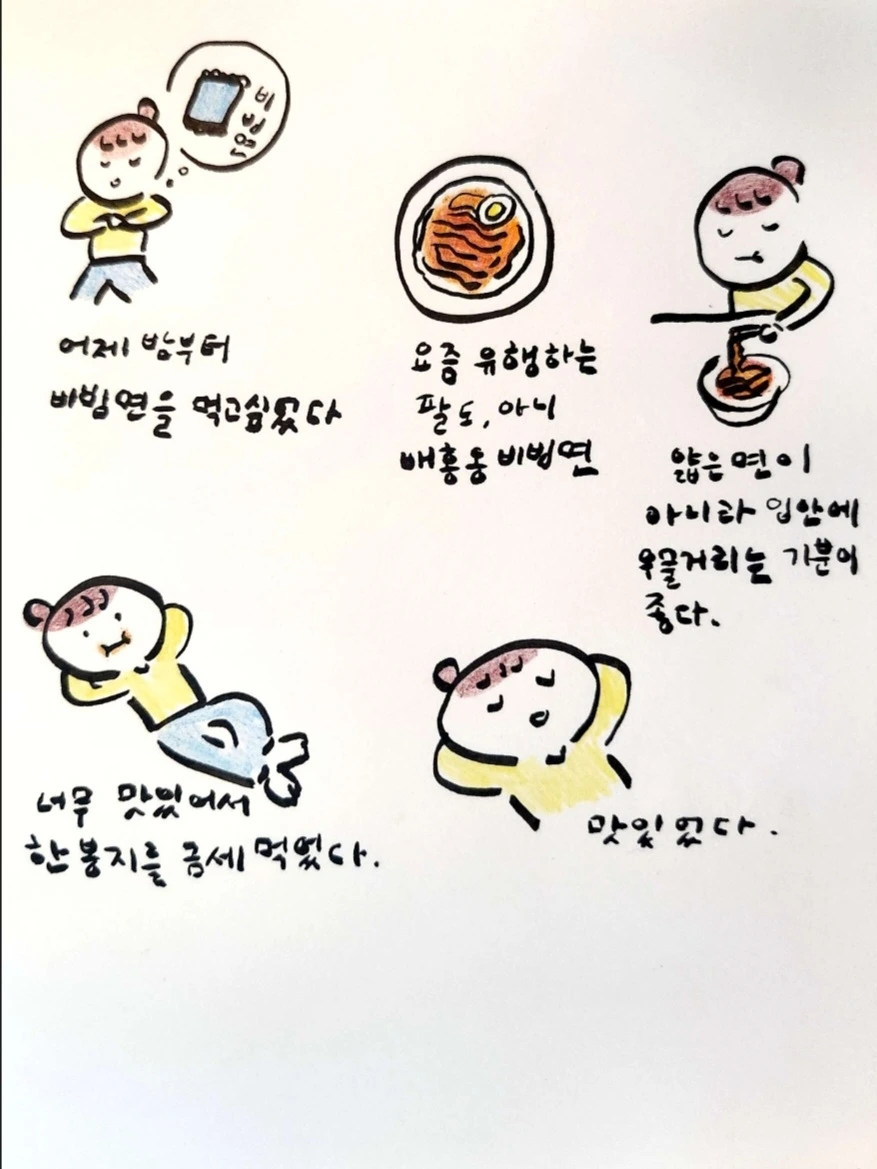 비
빔
면
어제 밤부터
비빔면을 먹고싶었다
요즘 유행하는
팔도, 아니
배홍동 비빔면
얇은 면이
아니라 입안에
우물거리는 기분이
좋다.
너무 맛있어서
한봉지를 금세 먹었다.
맛있었다.